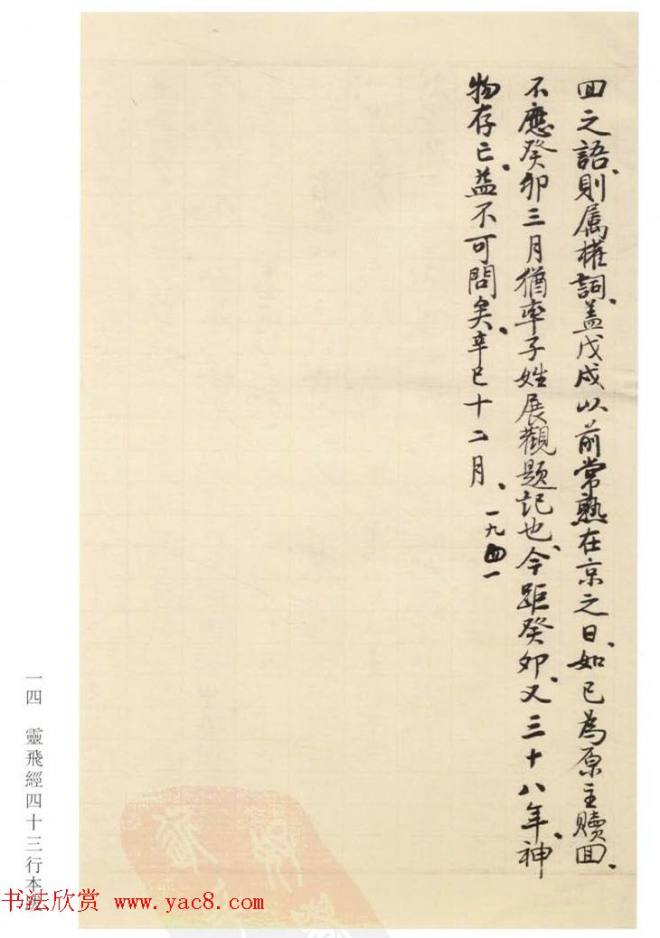 回之語、則属權詞、盖戊戌以前常熟在京之日、如已為原主贖回、
不應癸卯三月猶率子姓展觀題記也、今距癸卯、又三十八年、神
物存亡、益不可問矣、辛巳十二月、一九四一
一四　靈飛經四十三行本
书法欣赏 www.yac8.com